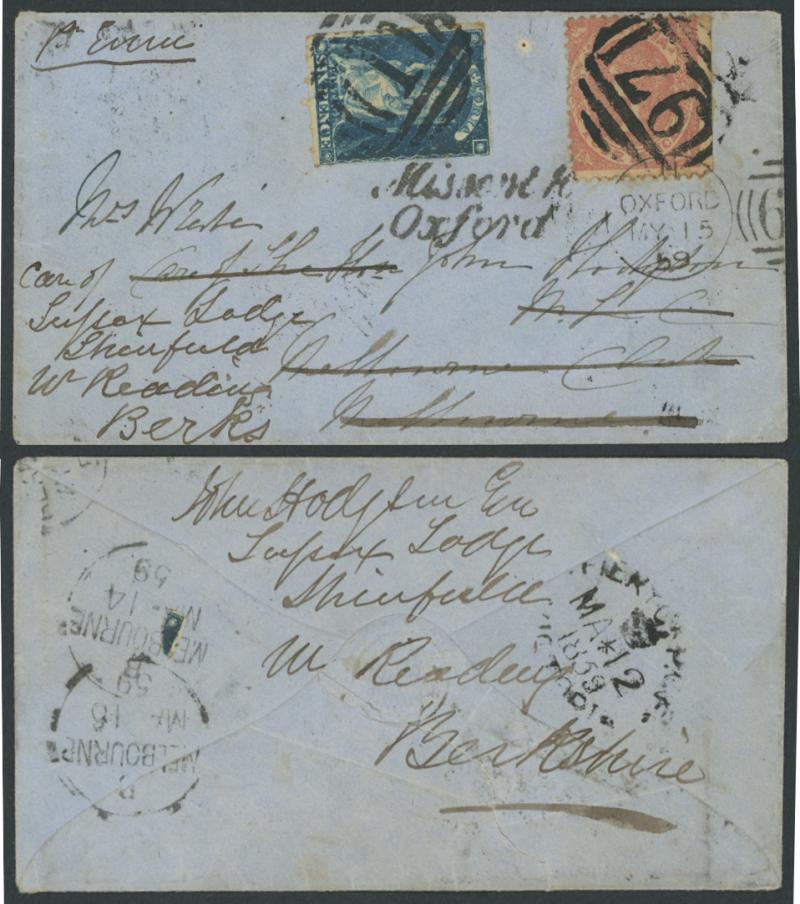 Pr Emeu
SIX PENCE
VICTORIA
176
Missent to
Oxford
OXFORD
MY 15
59
Mrs
Care of The Hon John Hodgson
M L C
Melbourne Club
Melbourne
Care of
Sussex Lodge
Shinfield
Nr Reading
Berks
John Hodgson Esq
Sussex Lodge
Shinfield
Nr Reading
Berkshire
MELBOURNE
MA 14
59
MELBOURNE
MA 16
59
MA*12
1859
VICTORIA